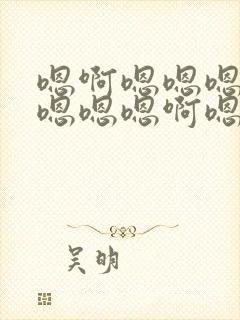 嗯啊嗯嗯嗯
嗯嗯嗯啊嗯
吴明